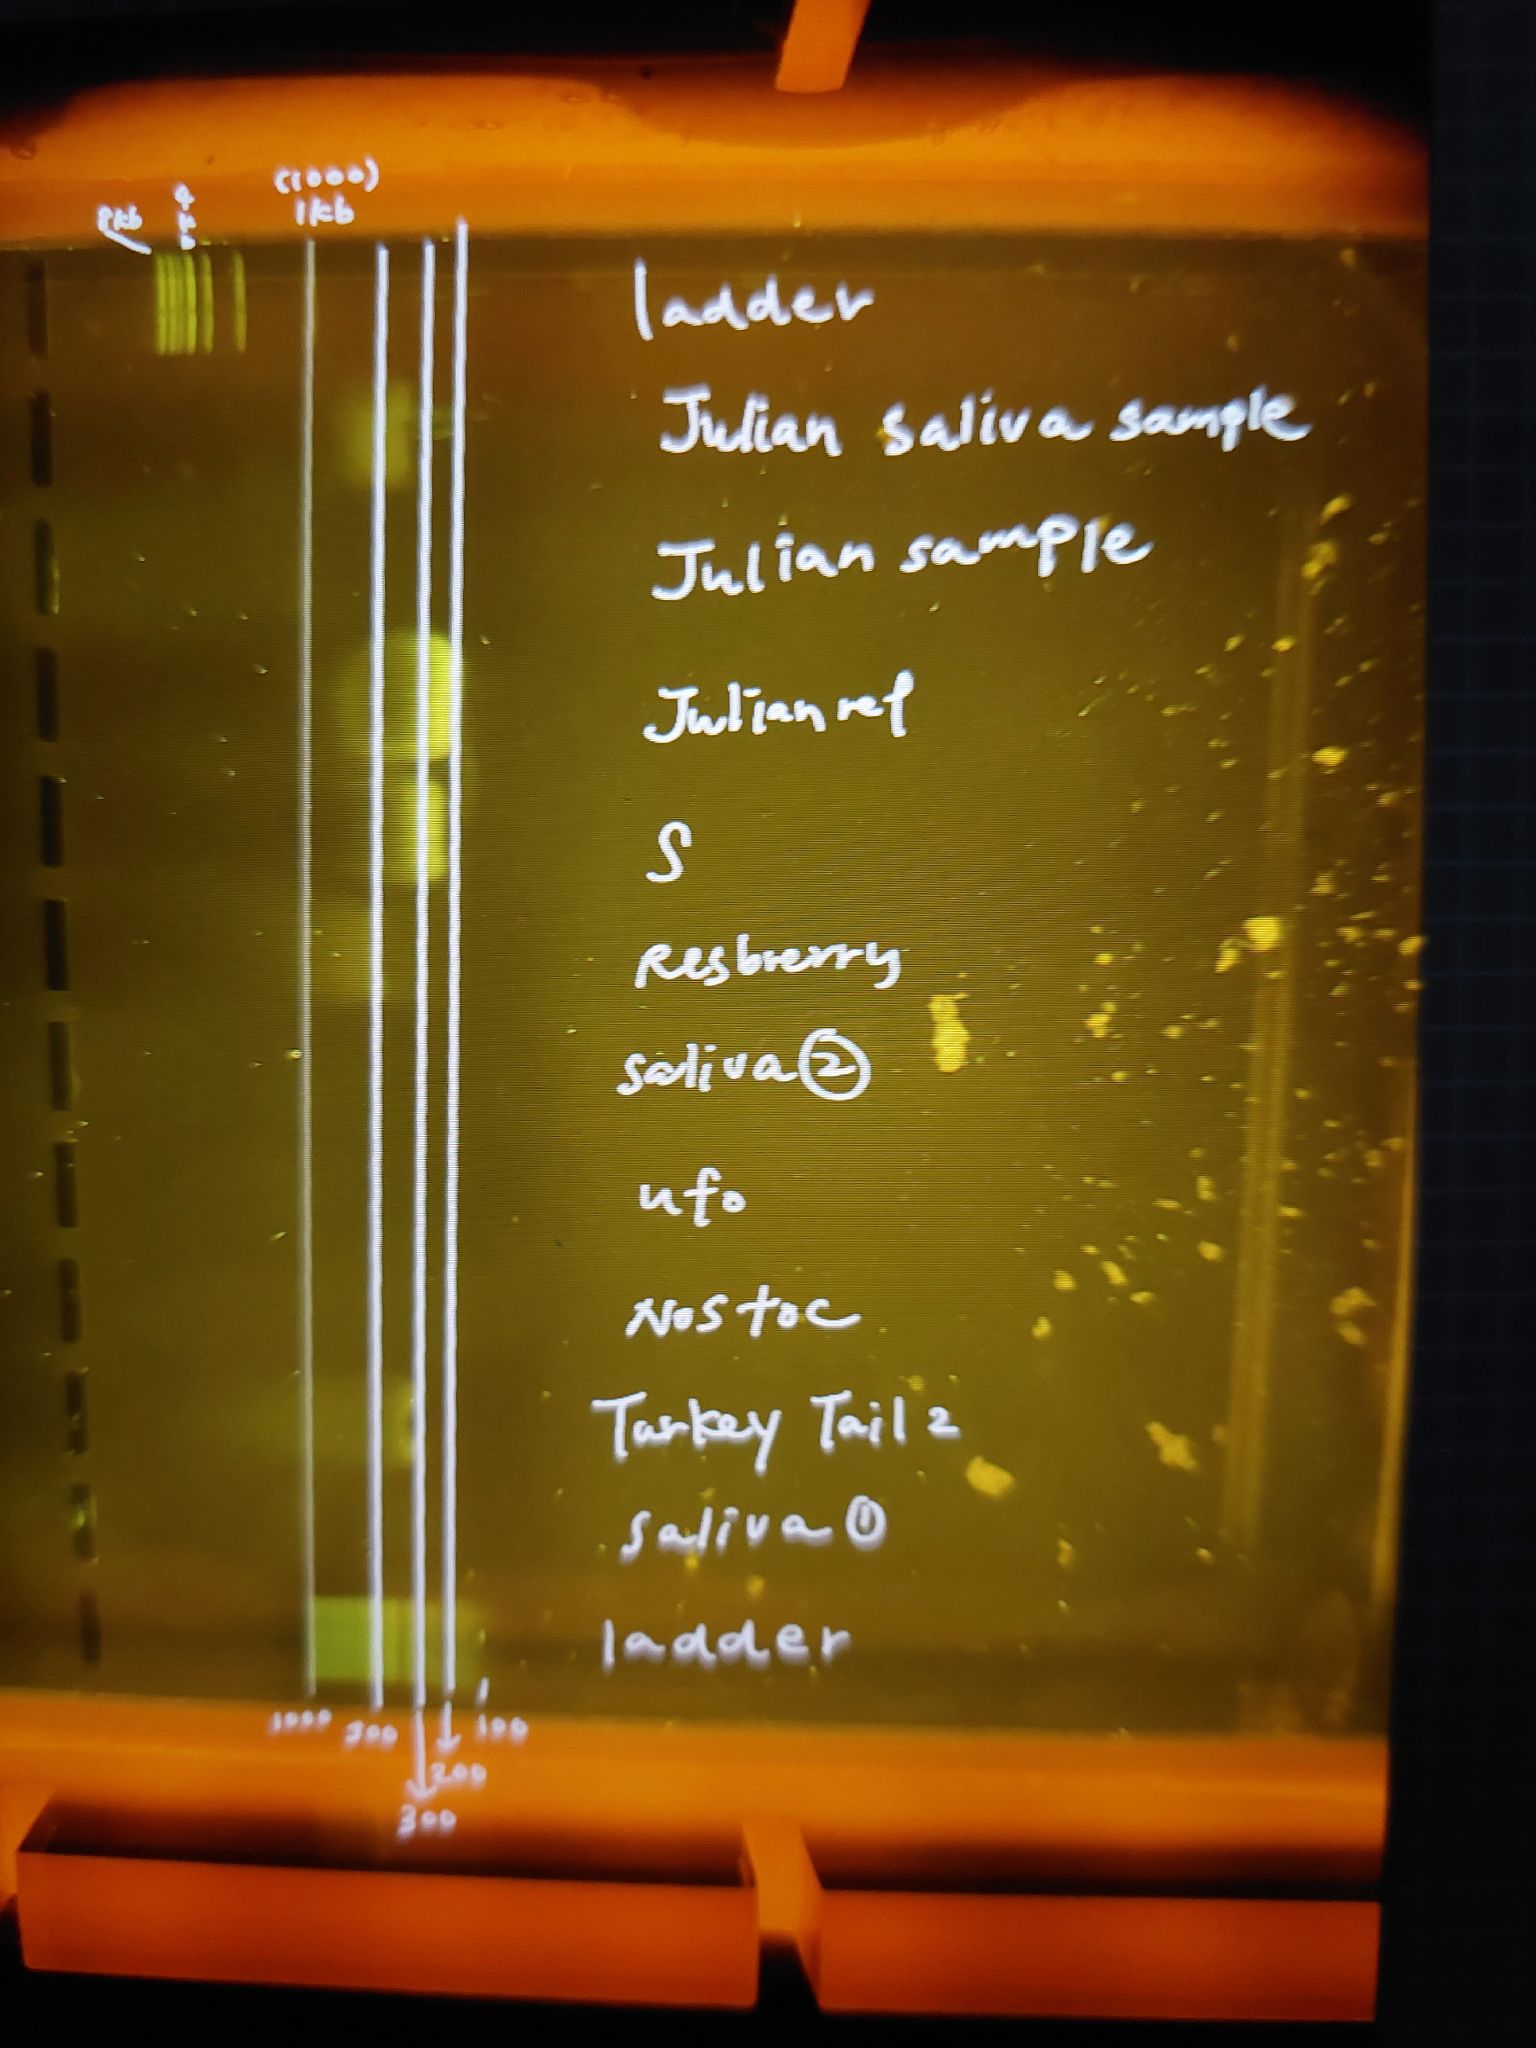 (1000)
8kb 4kb 1kb
ladder
Julian saliva sample
Julian sample
Julian ref
S
Resbrerry
saliva ②
ufo
Nostoc
Turkey Tail 2
saliva ①
ladder
1000 500 100
200
300